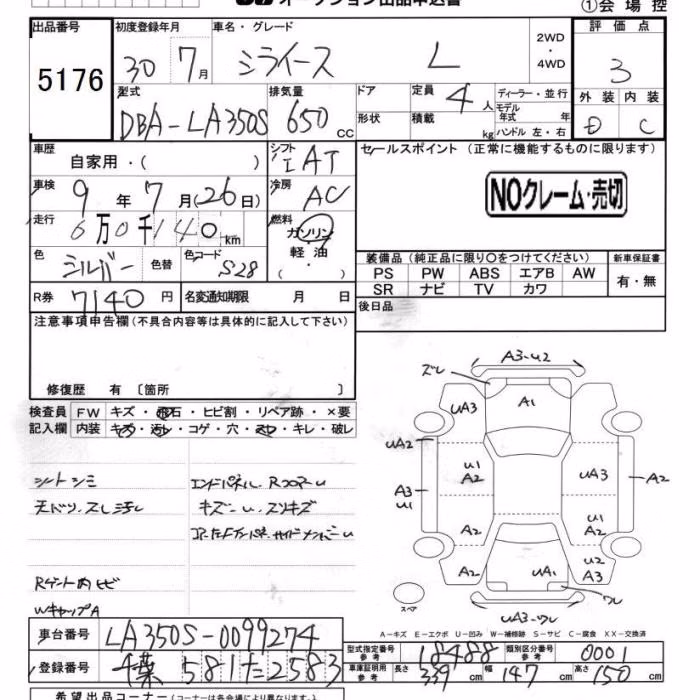 オークション出品申込書
①会場控
出品番号 初度登録年月 車名・グレード 2WD ・ 4WD 評価点
5176 30 7月 ミライース L 3
型式 排気量 ドア 定員 4人 ディーラー・並行 外装 内装
DBA-LA350S 650cc 形状 積載 kg モデル年式 年 ハンドル 左・右 D C
車歴 自家用・( ) シフト IAT セールスポイント(正常に機能するものに限ります)
車検 9年7月(26日) 冷房 AC NOクレーム・売切
走行 6万0千140km 燃料 ガソリン
軽油
色 シルバー 色替 色コード S28 ( ・ )
装備品(純正品に限り○をつけてください) 新車保証書
PS PW ABS エアB AW 有・無
SR ナビ TV カワ
R券 7140円 名変通知期限 月 日 後日品
注意事項申告欄(不具合内容等は具体的に記入して下さい)
修復歴 有 〔箇所 〕
検査員 FW キズ・飛石・ヒビ割・リペア跡・×要
記入欄 内装 キズ・汚レ・コゲ・穴・スレ・キレ・破レ
シートシミ エンドパネル、RコアU
天ドツ、スレ汚レ キズーU、スリキズ
Rゲート内ヒビ
WキャップA
A3-U2
ズレ
UA3 A1
UA2
U1 A2 UA3 A2
A3 U1
A2 U1 A2
A2 UA1 U2 A3
ワレ
スペア
UA3-ワレ
A-キズ E-エクボ U-凹み W-補修跡 S-サビ C-腐食 XX-交換済
車台番号 LA350S-0099274
型式指定番号 参考 18488 類別区分番号 参考 0001
登録番号 千葉 581 た 2583
車庫証明用 参考 長さ 339cm 幅 147cm 高さ 150cm
希望出品コーナー(コーナーは各会場により異なります。)